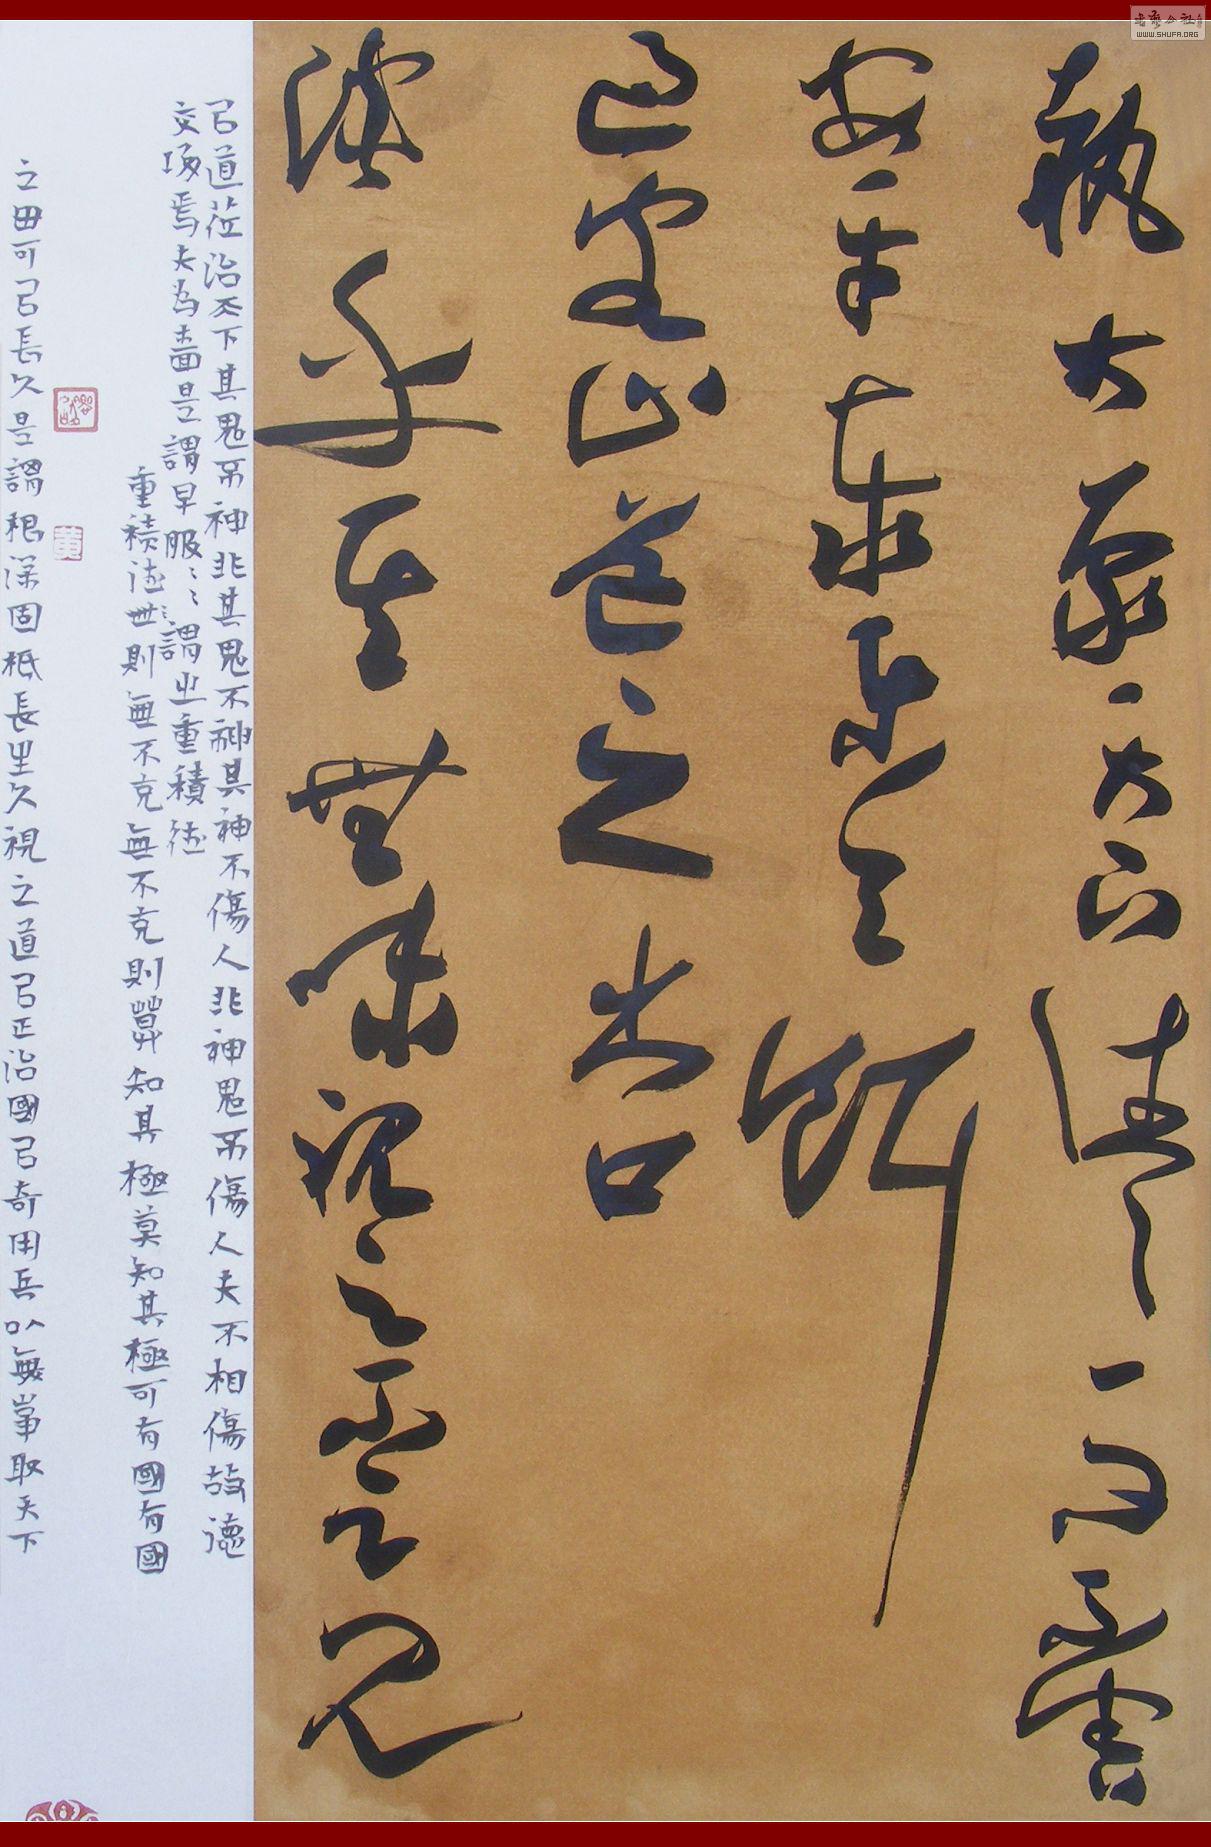 書藝公社
WWW.SHUFA.ORG
執大象天下往〻而不害
安平泰樂與餌
過客止道之出口
淡乎其無味視之不足見
㠯道莅治天下其鬼不神非其鬼不神其神不傷人非神鬼不傷人夫不相傷故德
交歸焉夫為嗇是謂早服〻〻謂之重積德
重積德世則無不克無不克則莫知其極莫知其極可有國有國
之母可㠯長久是謂根深固柢長生久視之道㠯正治國㠯奇用兵以無事取天下
黃